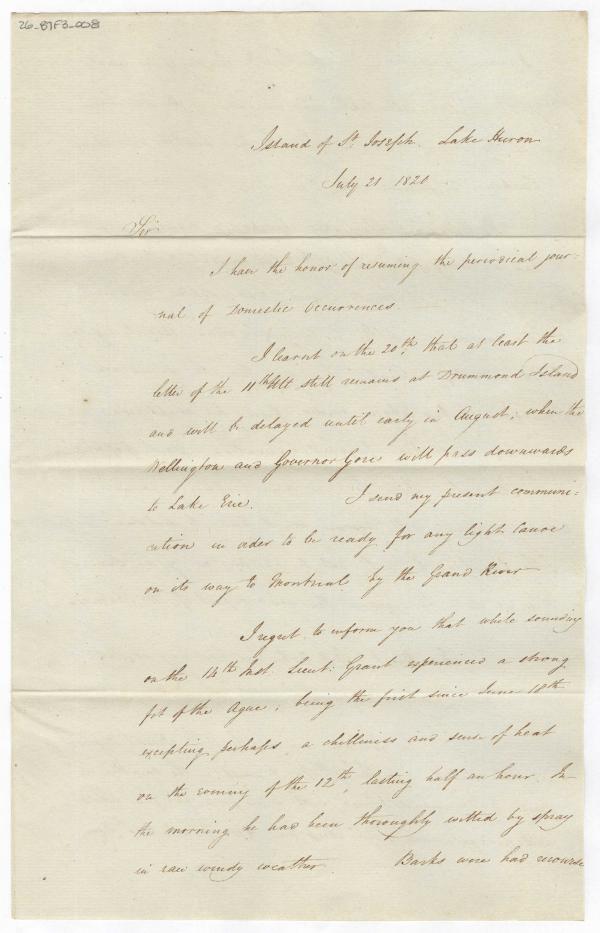 26-87F3-008
Island of St. Joseph. Lake Huron
July 21 1820
Sir
I have the honor of resuming the periodical jour-
nal of Domestic Occurrences.
I learnt on the 20th, that at least the
letter of the 11th Ult still remains at Drummond Island
and will be delayed until early in August; when the
Wellington and Governor Gore will pass downwards
to Lake Erie. I send my present communi-
cation in oder to be ready for any light Canoe
on its way to Montreal by the Grand River
I regret to inform you that while sounding
on the 14th Inst. Lieut: Grant experienced a strong
fit of the Ague, being the first since June 18th
excepting perhaps a chilliness and sense of heat
on the evening of the 12th, lasting half an hour. In
the morning he had been thoroughly wetted by spray
in raw windy weather. Barks were had recourse